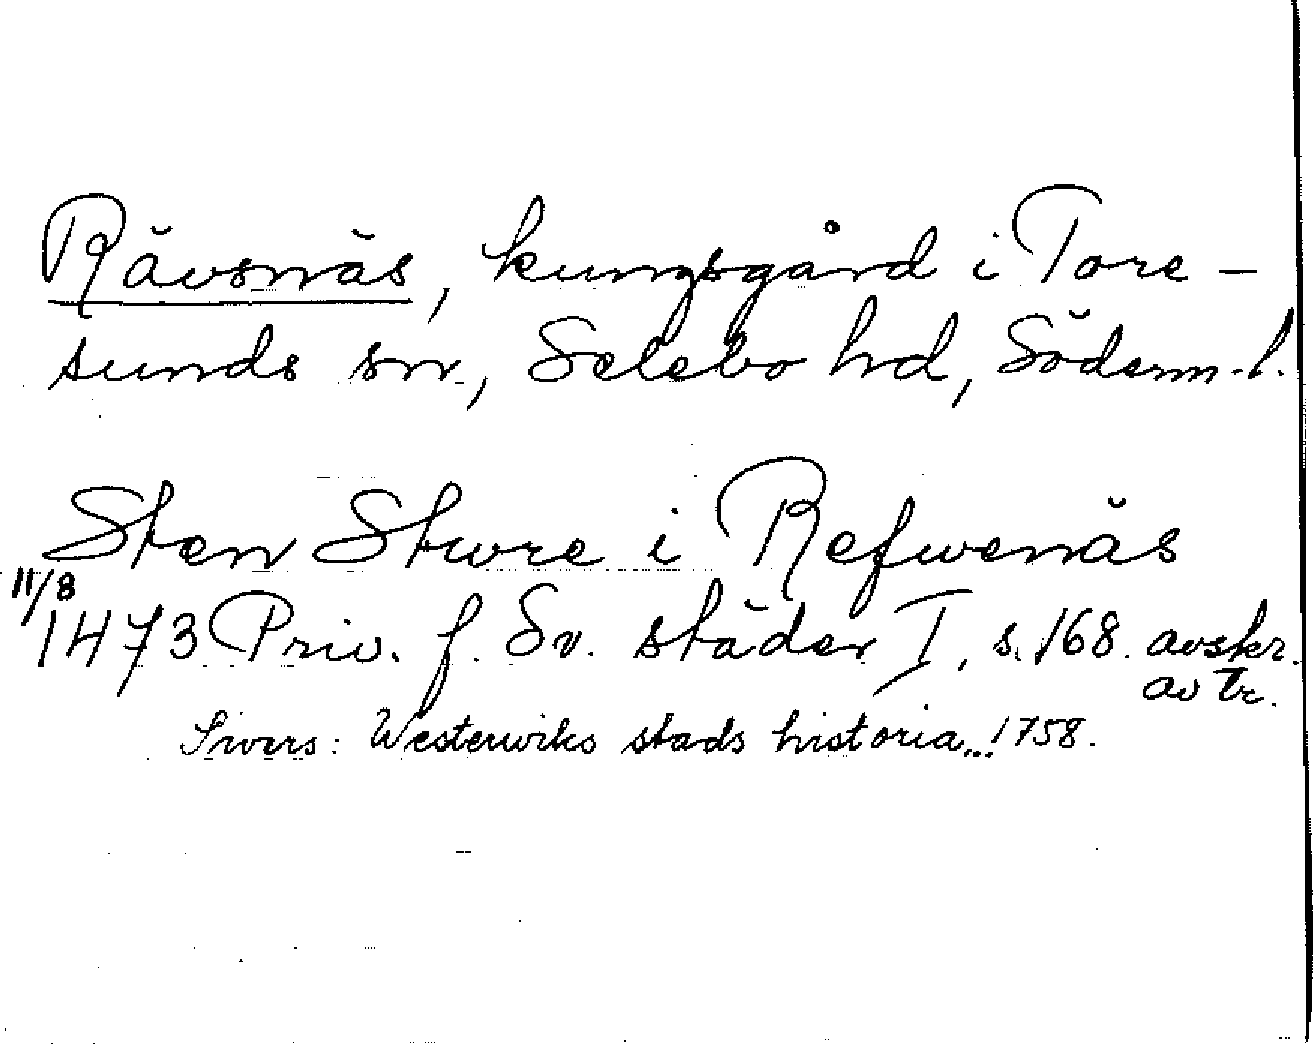 Rävsnäs, kungsgård i Tore-
sunds sn, Selebo hd, Söderm.l.
Sten Sture i Refwenäs
11/8
1473 Priv. f. Sv. städer I, s. 168. avskr.
av tr.
Sivers: Westerwiks stads historia... 1758.